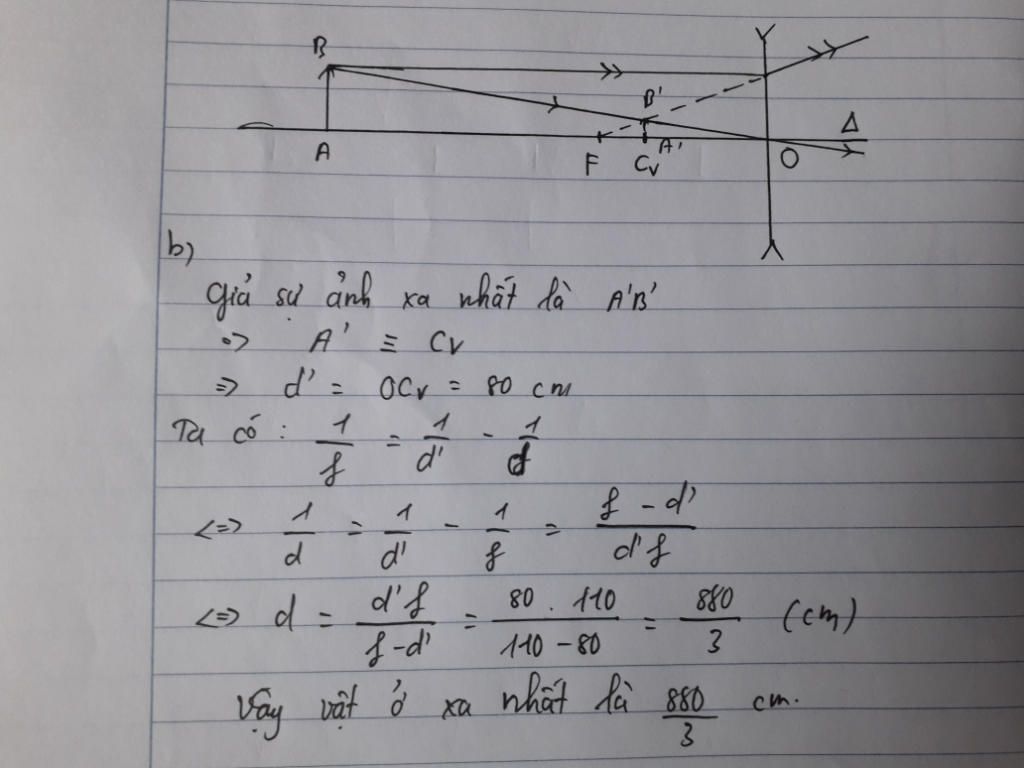 B
B'
Δ
A F Cv A' O
b)
Giả sự ảnh xa nhất là A'B'
=> A' ≡ Cv
=> d' = OCv = 80 cm
Ta có : 1/f = 1/d' - 1/d
<=> 1/d = 1/d' - 1/f = (f - d')/(d'f)
<=> d = d'f/(f-d') = (80 . 110)/(110-80) = 880/3 (cm)
Vậy vật ở xa nhất là 880/3 cm.